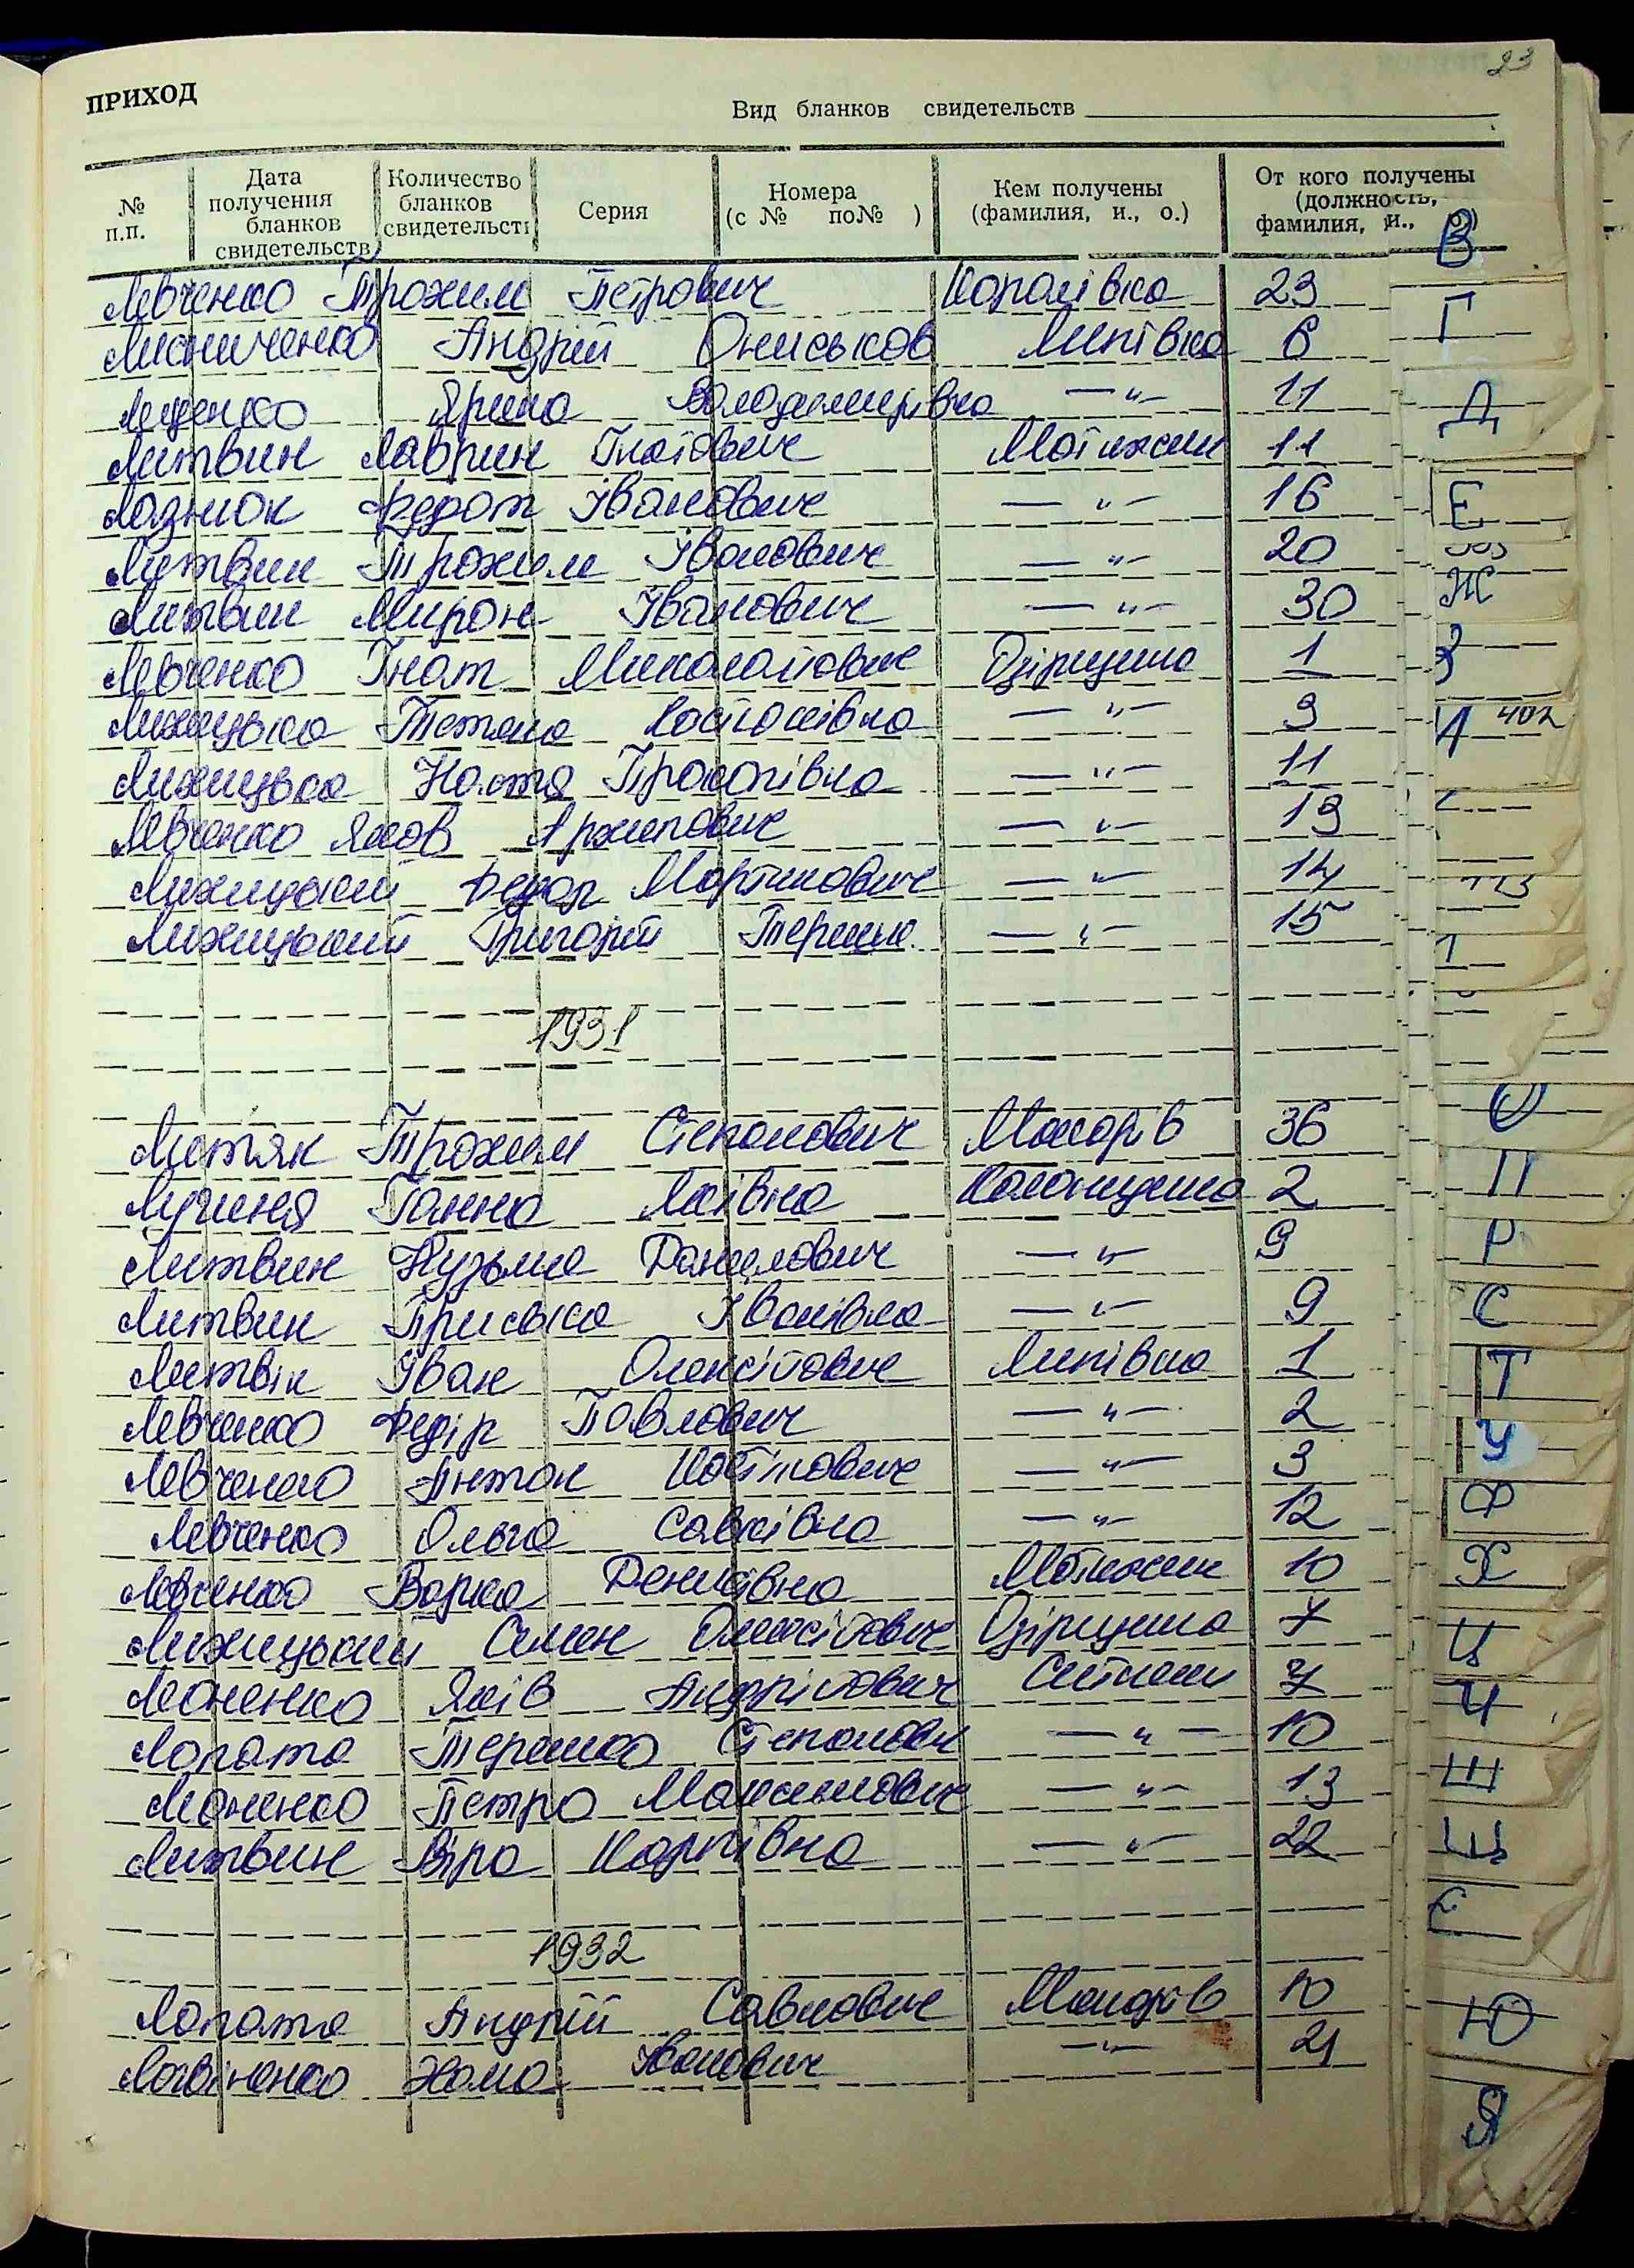 23
ПРИХОД
Вид бланков свидетельств
№ п.п.
Дата получения бланков свидетельств
Количество бланков свидетельств
Серия
Номера (с № по№ )
Кем получены (фамилия, и., о.)
От кого получены (должность, фамилия, и., о.)
Левченко Трохим Петрович Королівка 23
Лисниченко Андрій Ониськов Липівка 6
Лещенко Ярина Володимирівна —"— 11
Литвин Лаврин Гнатович Мотижин 11
Лазнюк Федот Іванович —"— 16
Литвин Трохим Іванович —"— 20
Литвин Мирон Іванович —"— 30
Левченко Гнат Миколайович Озірщина 1
Лижицька Тетяна Костянівна —"— 9
Лижицька Настя Прокопівна —"— 11
Левченко Яков Архипович —"— 13
Лижицький Федор Мартинович —"— 14
Лижицький Григорій Терешк. —"— 15
1931
Литяк Трохим Степанович Макарів 36
Лучиня Ганна Яківна Колонщина 2
Литвин Кузьма Данилович —"— 9
Литвин Приська Іванівна —"— 9
Литвін Іван Олексійович Липівка 1
Левченко Федір Павлович —"— 2
Левченко Антон Костьтович —"— 3
Левченко Ольга Савківна —"— 12
Левченко Варка Денисівна Мотижин 10
Лижицький Семен Олексійович Озірщина 7
Леоненко Яків Андрійович Ситняки 7
Лопата Терешко Степанови —"— 10
Леоненко Петро Максимович —"— 13
Литвин Віра Карпівна —"— 22
1932
Лопата Андрій Савкович Макарів 10
Логвіненко Хома Іванович —"— 21
В
Г
Д
Е
Ж
З
И 402
О
П
Р
С
Т
У
Ф
Х
Ц
Ч
Ш
Щ
Є
Ю
Я